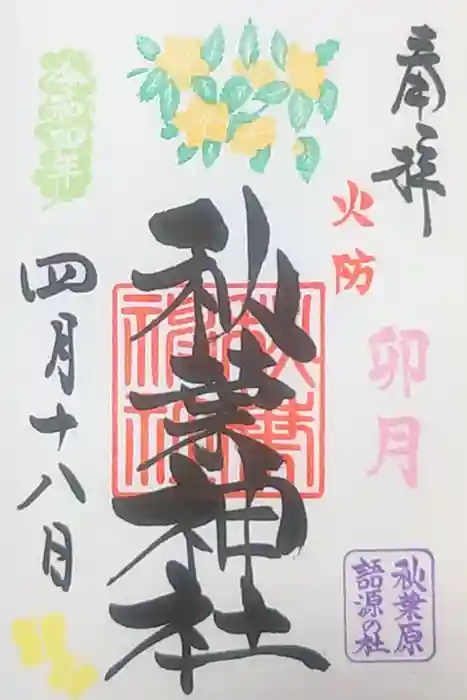 奉拝
火防
卯月
秋葉原
語源の社
秋葉神社
秋葉神社
令和四年
四月十八日